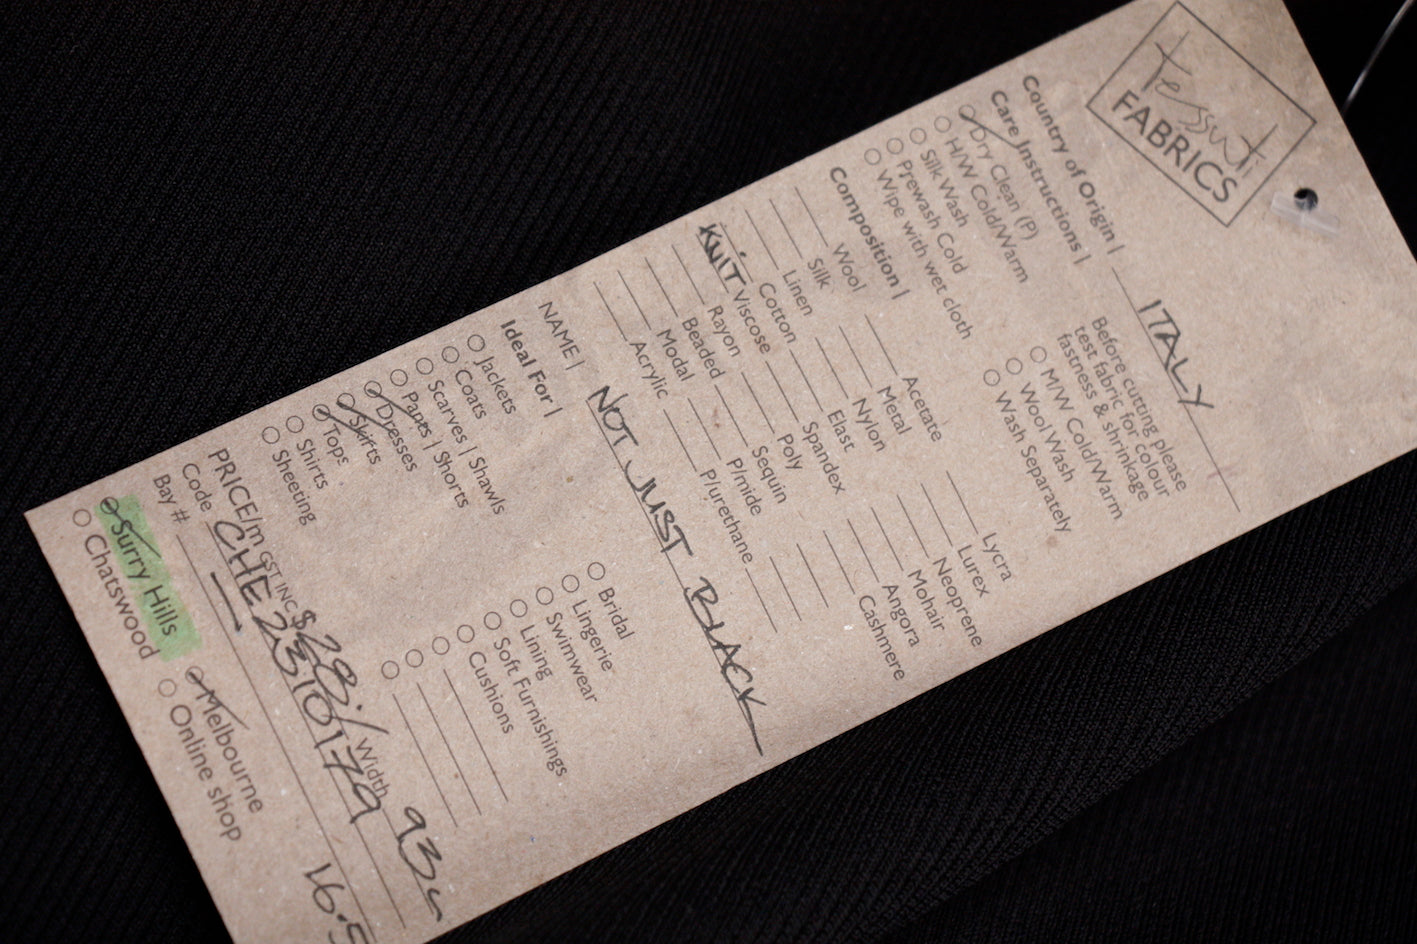 tessuti
FABRICS
Country of Origin | ITALY
Care Instructions |
Before cutting please
test fabric for colour
fastness & shrinkage
Dry Clean (P)
H/W Cold/Warm
Silk Wash
Prewash Cold
Wipe with wet cloth
M/W Cold/Warm
Wool Wash
Wash Separately
Composition |
Wool Acetate Lycra
Silk Metal Lurex
Linen Nylon Neoprene
Cotton Elast Mohair
KNIT Viscose Spandex Angora
Rayon Poly Cashmere
Beaded Sequin
Modal P/mide
Acrylic P/urethane
NAME | NOT JUST BLACK
Ideal For |
Jackets Bridal
Coats Lingerie
Scarves | Shawls Swimwear
Pants | Shorts Lining
Dresses Soft Furnishings
Skirts Cushions
Tops
Shirts
Sheeting
PRICE/m GST INC $28/ Width 93c
Code CHE2310179
Bay # 16.5
Surry Hills Melbourne
Chatswood Online shop